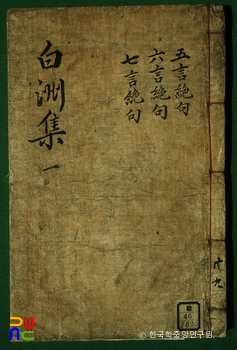 白洲集 一
五言絶句
六言絶句
七言絶句
共九
© 한국학중앙연구원